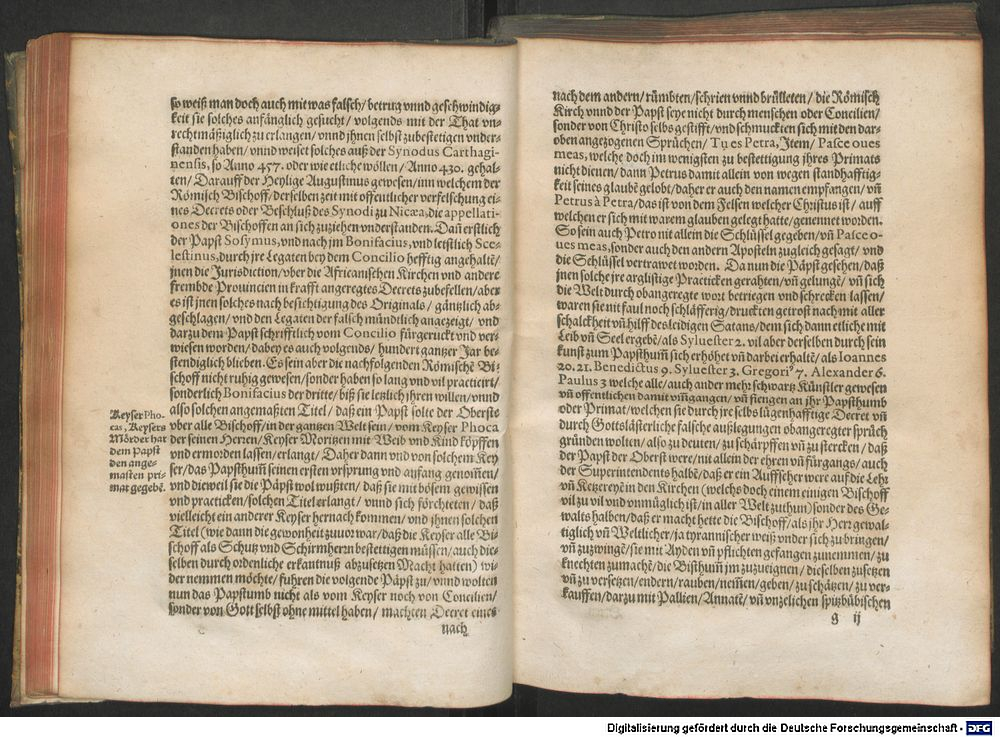 so weiß man doch auch mit was falsch/ betrug vnnd geschwindig-
keit sie solches anfänglich gesucht/ volgends mit der That vn-
rechtmäßiglich zu erlangen/ vnnd jhnen selbst zubestetigen vnder-
standen haben/ vnnd weiset solches auß der Synodus Carthagi-
nensis, so Anno 457. oder wie etliche wöllen/ Anno 430. gehal-
ten/ Darauff der Heylige Augustinus gewesen/ inn welchem der
Römisch Bischoff/ derselben zeit mit offentlicher verfelschung ei-
nes Decrets oder Beschluß des Synodi zu Nicæa, die appellati-
ones der Bischoffen an sich zuziehen vnderstanden. Dañ erstlich
der Papst Sosymus, vnd nach jm Bonifacius, vnd letstlich Sce-
lestinus, durch jre Legaten bey dem Concilio hefftig angehaltẽ/
jnen die Jurisdiction/ vber die Africanischen Kirchen vnd andere
frembde Prouincien in krafft angeregtes Decrets zubefellen/ aber
es ist jnen solches nach besichtigung des Originals/ gäntzlich ab-
geschlagen/ vnd den Legaten der falsch mündtlich angezeigt/ vnd
darzu dem Papst schrifftlich vom Concilio fürgeruckt vnd ver-
wiesen worden/ dabey es auch volgends/ hundert gantzer Jar be-
stendiglich blieben. Es sein aber die nachfolgenden Römischẽ Bi-
schoff nicht ruhig gewesen/ sonder haben so lang vnd vil practicirt/
sonderlich Bonifacius der dritte/ biß sie letzlich jhren willen/ vnnd
also solchen angemaßten Titel/ daß ein Papst solte der Oberste
vber alle Bischoff/ in der gantzen Welt sein/ vom Keyser Phoca
der seinen Herren/ Keyser Moritzen mit Weib vnd Kind köpffen
vnd ermorden lassen/ erlangt/ Daher dann vnd von solchem Key
ser/ das Papsthum̃ seinen ersten vrsprung vnd anfang genom̃en/
vnd dieweil sie die Päpst wol wußten/ daß sie mit bösem gewissen
vnd practicken/ solchen Titel erlangt/ vnnd sich förchteten/ daß
vielleicht ein anderer Keyser hernach kommen/ vnd jhnen solchen
Titel (wie dann die gewonheit zuuor war/ daß die Keyser alle Bi-
schoff als Schutz vnd Schirmherrn bestettigen müssen/ auch die-
selben durch ordenliche erkantnuß abzusetzen Macht hatten) wi-
der nemmen möchte/ fuhren die volgende Päpst zu/ vnnd wolten
nun das Papstumb nicht als vom Keyser noch von Concilien/
sonder von Gott selbst ohne mittel haben/ machten Decret eines
nach
Keyser Pho-
cas, Keysers
Mörder hat
dem Papst
den ange-
masten pri-
mat gegebẽ.
nach dem andern/ rümbten/ schrien vnnd brülleten/ die Römisch
Kirch vnnd der Papst seye nicht durch menschen oder Concilien/
sonder von Christo selbs gestifft/ vnd schmuckten sich mit den dar-
oben angezogenen Sprüchen/ Tu es Petra, Item/ Pasce oues
meas, welche doch im wenigsten zu bestettigung jhres Primats
nicht dienen/ dann Petrus damit allein von wegen standhafftig-
keit seines glaubẽ gelobt/ daher er auch den namen empfangen/ vñ
Petrus à Petra/ das ist von dem Felsen welcher Christus ist/ auff
welchen er sich mit warem glauben gelegt hatte/ genennet worden.
So sein auch Petro nit allein die Schlüssel gegeben/ vñ Pasce o-
ues meas, sonder auch den andern Aposteln zugleich gesagt/ vnd
die Schlüssel vertrawet worden. Da nun die Päpst gesehen/ daß
jnen solche jre arglistige Practicken gerahten/ vñ gelungẽ/ vñ sich
die Welt durch obangeregte wort betriegen vnd schrecken lassen/
waren sie nit faul noch schläfferig/ druckten getrost nach mit aller
schalckheit vñ hilff des leidigen Satans/ dem sich dann etliche mit
Leib vñ Seel ergebẽ/ als Syluester 2. vil aber derselben durch sein
kunst zum Papsthum̃ sich erhöhet vñ darbei erhaltẽ/ als Ioannes
20. 21. Benedictus 9. Syluester 3. Gregori⁹ 7. Alexander 6.
Paulus 3 welche alle/ auch ander mehr schwartz Künstler gewesen
vñ offentlichen damit vm̃gangen/ vñ fiengen an jhr Papsthumb
oder Primat/ welchen sie durch jre selbs lügenhafftige Decret vñ
durch Gottslästerliche falsche außlegungen obangeregter sprüch
gründen wolten/ also zu deuten/ zu schärpffen vñ zustercken/ daß
der Papst der Oberst were/ nit allein der ehren vñ fürgangs/ auch
der Superintendents halbẽ/ daß er ein Auffseher were auff die Lehr
vñ Ketzereyẽ in den Kirchen (welchs doch einem einigen Bischoff
vil zu vil vnd vnmüglich ist/ in aller Welt zuthun) sonder des Ge-
walts halben/ daß er macht hette die Bischoff/ als jhr Herr gewal-
tiglich vñ Weltlicher/ ja tyrannischer weiß vnder sich zu bringen/
vñ zuzwingẽ/ sie mit Ayden vñ pflichten gefangen zunemmen/ zu
knechten zumachẽ/ die Bisthum̃ jm zuzueignen/ dieselben zusetzen
vñ zu versetzen/ endern/ rauben/ nem̃en/ geben/ zu schätzen/ zu ver-
kauffen/ darzu mit Pallien/ Annatẽ/ vñ vnzelichen spitzbübischen
g ij
Digitalisierung gefördert durch die Deutsche Forschungsgemeinschaft - DFG